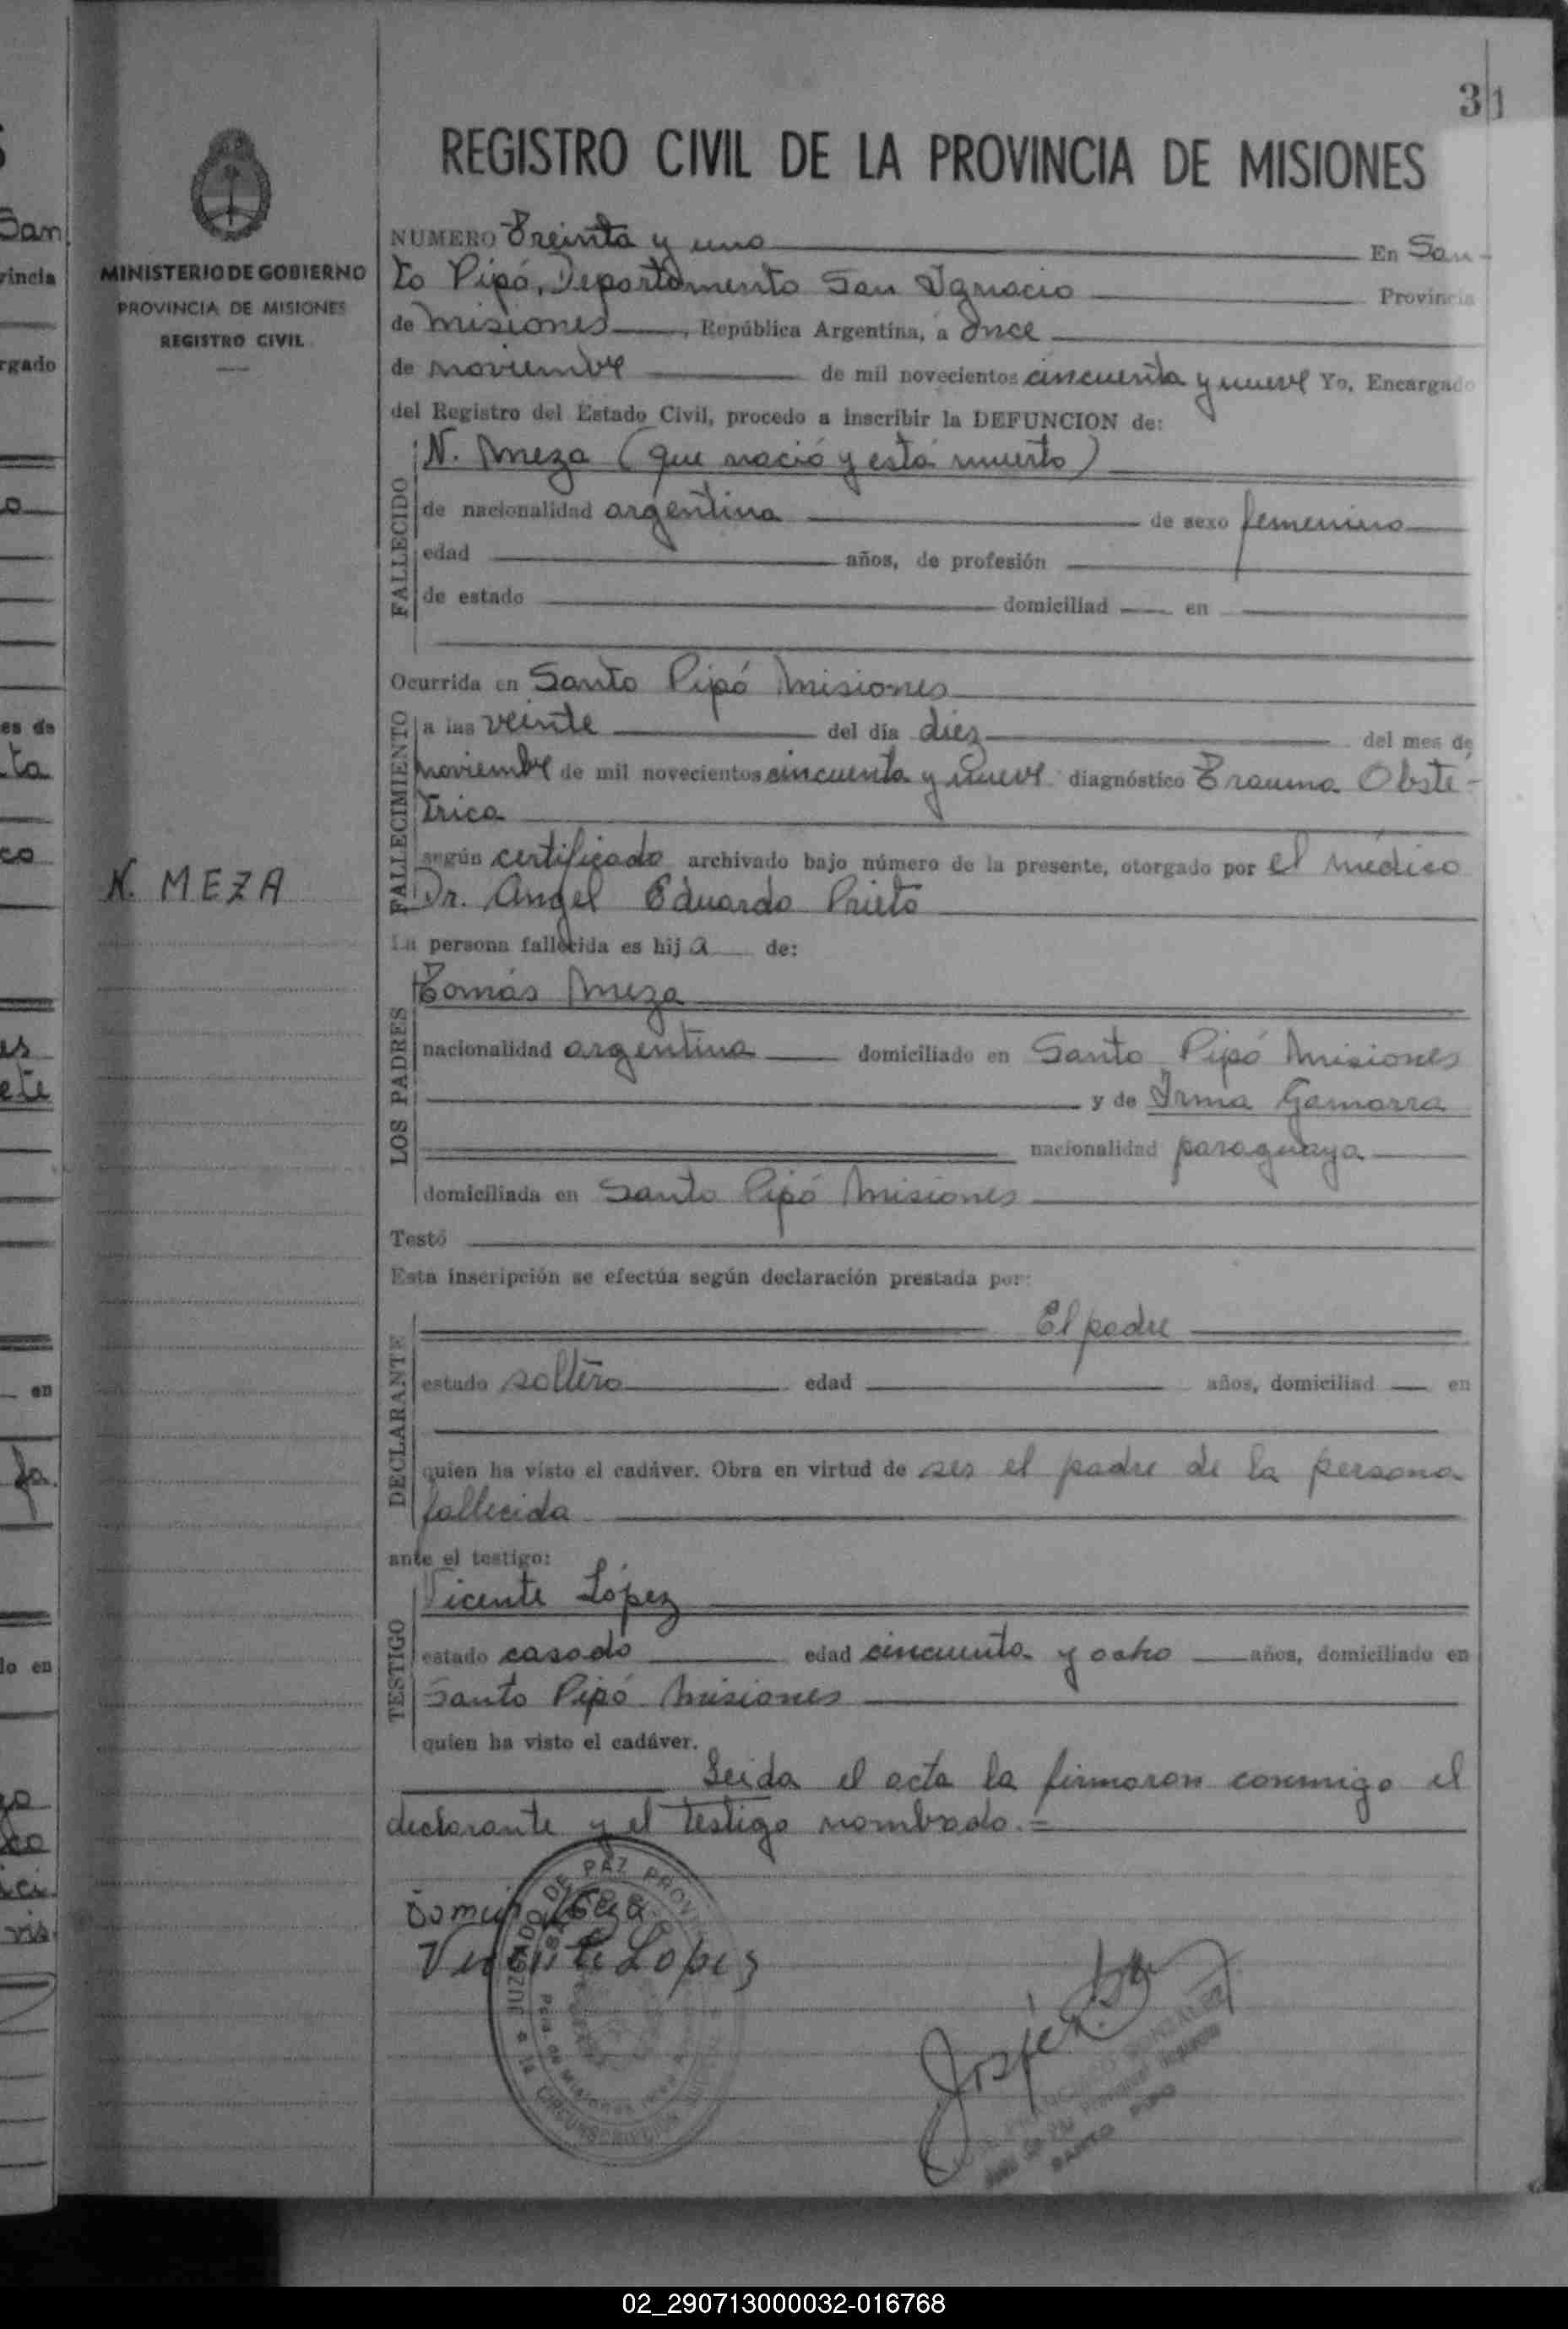 31
REGISTRO CIVIL DE LA PROVINCIA DE MISIONES
MINISTERIO DE GOBIERNO
PROVINCIA DE MISIONES
REGISTRO CIVIL
N. MEZA
NUMERO Treinta y uno En San-
to Pipó, Departamento San Ignacio Provincia
de Misiones, República Argentina, a Once
de noviembre de mil novecientos cincuenta y nueve Yo, Encargado
del Registro del Estado Civil, procedo a inscribir la DEFUNCION de:
FALLECIDO
N. Meza (que nació y está muerto)
de nacionalidad argentina de sexo femenino
edad años, de profesión
de estado domiciliad en
Ocurrida en Santo Pipó Misiones
FALLECIMIENTO
a las veinte del día diez del mes de
noviembre de mil novecientos cincuenta y nueve diagnóstico Trauma Obsté-
trica
según certificado archivado bajo número de la presente, otorgado por el médico
Dr. Angel Eduardo Prieto
La persona fallecida es hija de:
LOS PADRES
Tomás Meza
nacionalidad argentina domiciliado en Santo Pipó Misiones
y de Irma Gamarra
nacionalidad paraguaya
domiciliada en Santo Pipó Misiones
Testó
Esta inscripción se efectúa según declaración prestada por:
DECLARANTE
El padre
estado soltero edad años, domiciliad en
quien ha visto el cadáver. Obra en virtud de ser el padre de la persona
fallecida
ante el testigo:
TESTIGO
Vicente López
estado casado edad cincuenta y ocho años, domiciliado en
Santo Pipó Misiones
quien ha visto el cadáver.
Leida el acta la firmaron conmigo el
declarante y el testigo nombrado.=
Vicente Lopez
JUZGADO DE PAZ
SANTO PIPO
02_290713000032-016768